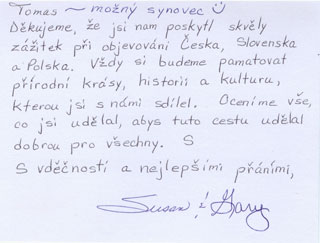 Tomas ~ možný synovec ☺
Děkujeme, že jsi nam poskytl skvěly
zážitek při objevování Česka, Slovenska
a Polska. Vždy si budeme pamatovat
přírodní krásy, historii a kulturu,
kterou jsi s námi sdílel. Oceníme vše,
co jsi udělal, abys tuto cestu udělal
dobrou pro všechny. S
S vděčností a nejlepšími přáními,
Susan i Gary